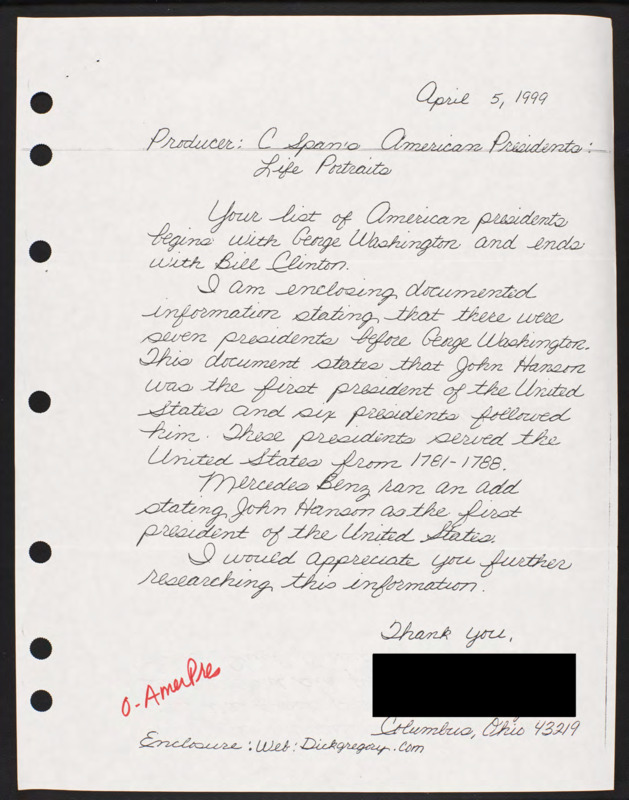 April 5, 1999
Producer: C Span's American Presidents:
Life Portraits
Your list of American presidents
begins with George Washington and ends
with Bill Clinton.
I am enclosing documented
information stating that there were
seven presidents before George Washington.
This document states that John Hanson
was the first president of the United
States and six presidents followed
him. These presidents served the
United States from 1781-1788.
Mercedes Benz ran an add
stating John Hanson as the first
president of the United States.
I would appreciate you further
researching this information.
Thank you,
Columbus, Ohio 43219
O-AmerPres
Enclosure: Web: Dickgregory.com